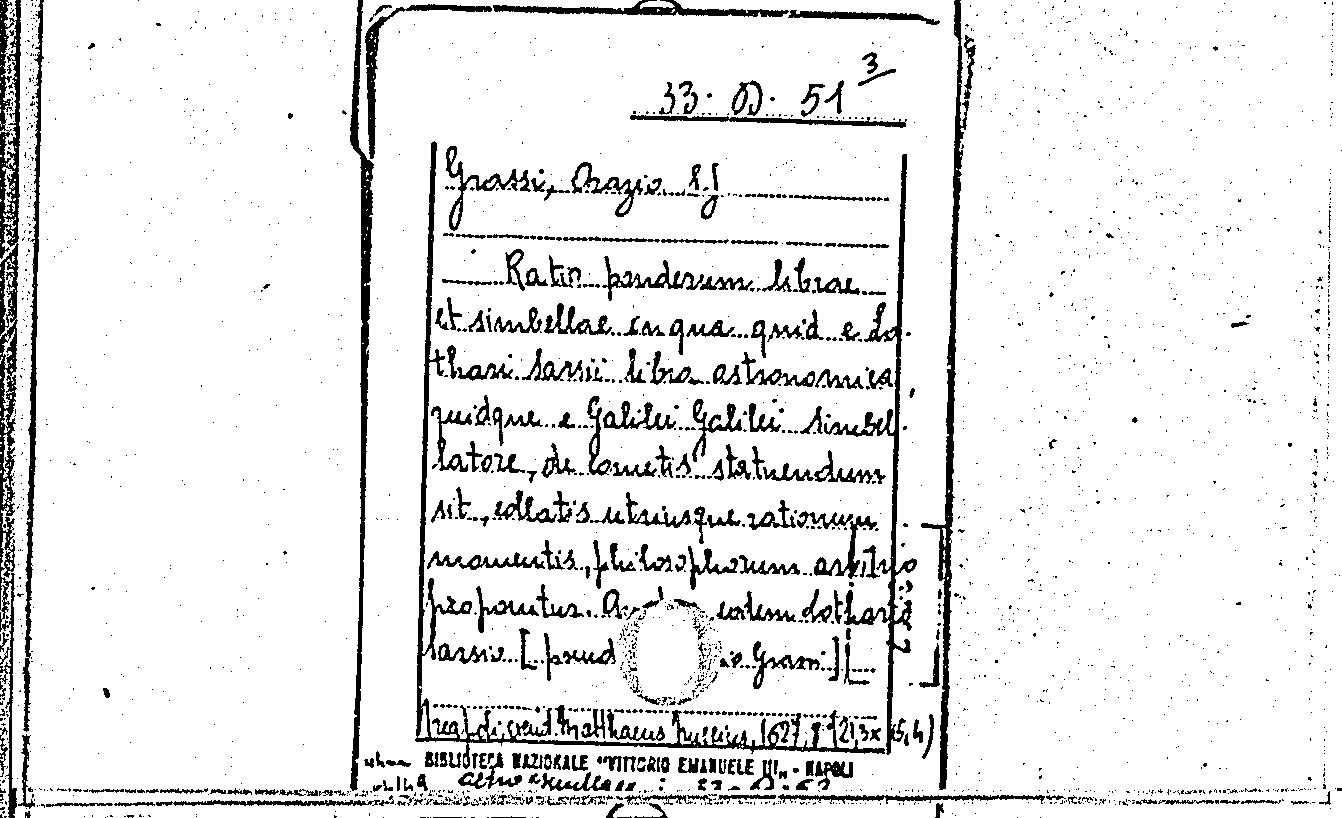 33. D. 51 3
Grassi, Orazio S.J
Ratio ponderum librae
et simbellae in qua quid e Lo.
thari Sarsii libra astronomica,
quidque e Galilei Galilei simbel.
latore, de cometis statuendum
sit, collatis utriusque rationum
momentis, philosophorum arbitrio
proponitur. eodem Lothario
Sarsio [pseud Grassi]
Neapoli, excud. Matthaeus Nuccius, 1627, 8° (21,3x15,4)
BIBLIOTECA NAZIONALE "VITTORIO EMANUELE III" - NAPOLI
altro esemplare :